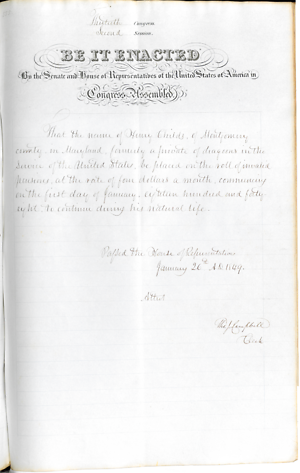 Thirtieth Congress
Second Session
BE IT ENACTED
By the Senate and House of Representatives of the United States of America in
Congress Assembled,
That the name of Henry Childs, of Montgomery
county, in Maryland, formerly a private of dragoons in the
service of the United States, be placed on the roll of invalid
pensions, at the rate of four dollars a month, commencing
on the first day of January, eighteen hundred and forty
eight, to continue during his natural life.
Passed the House of Representatives
January 26th A.D. 1849.
Attest
Tho J Campbell
Clerk